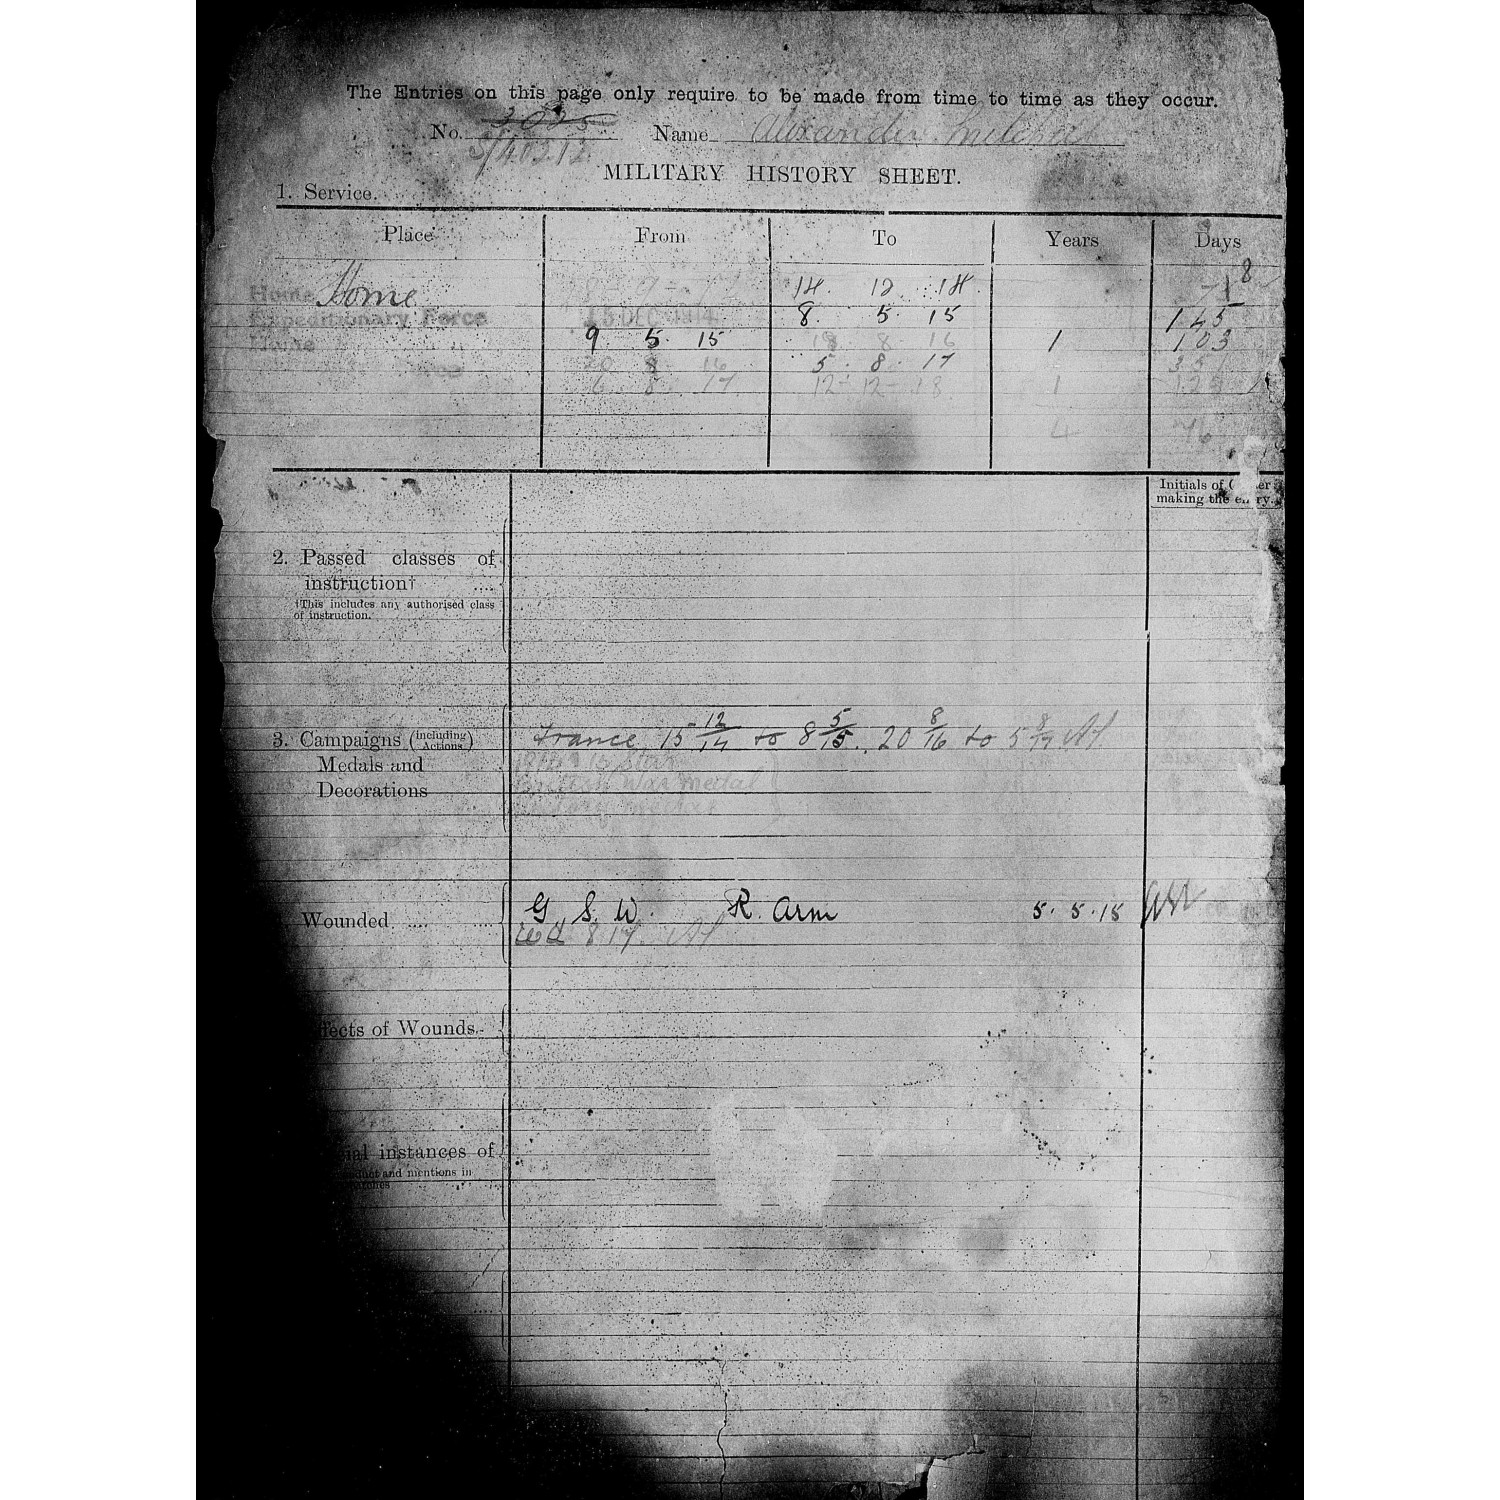 The Entries on this page only require to be made from time to time as they occur.
No. 3025 Name Alexander Mitchell
S/40212
MILITARY HISTORY SHEET.
1. Service.
Place From To Years Days
Home Home 14 12 14
Expeditionary Force 15 DEC 1914 8 5 15 145
Home 9 5 15 18 8 16 1 103
20 8 16 5 8 17 351
6 8 17 12 12 18 1
4 76
Initials of
making the
2. Passed classes of
instruction† ....
†This includes any authorised class
of instruction.
3. Campaigns (including Actions) France 15 12/14 to 8 5/15, 20 8/16 to 5 8/17
Medals and Star
Decorations British War medal
Victory medal
Wounded .... .... G. S. W. R. Arm 5.5.15
8.17
of Wounds
instances of
and mentions in